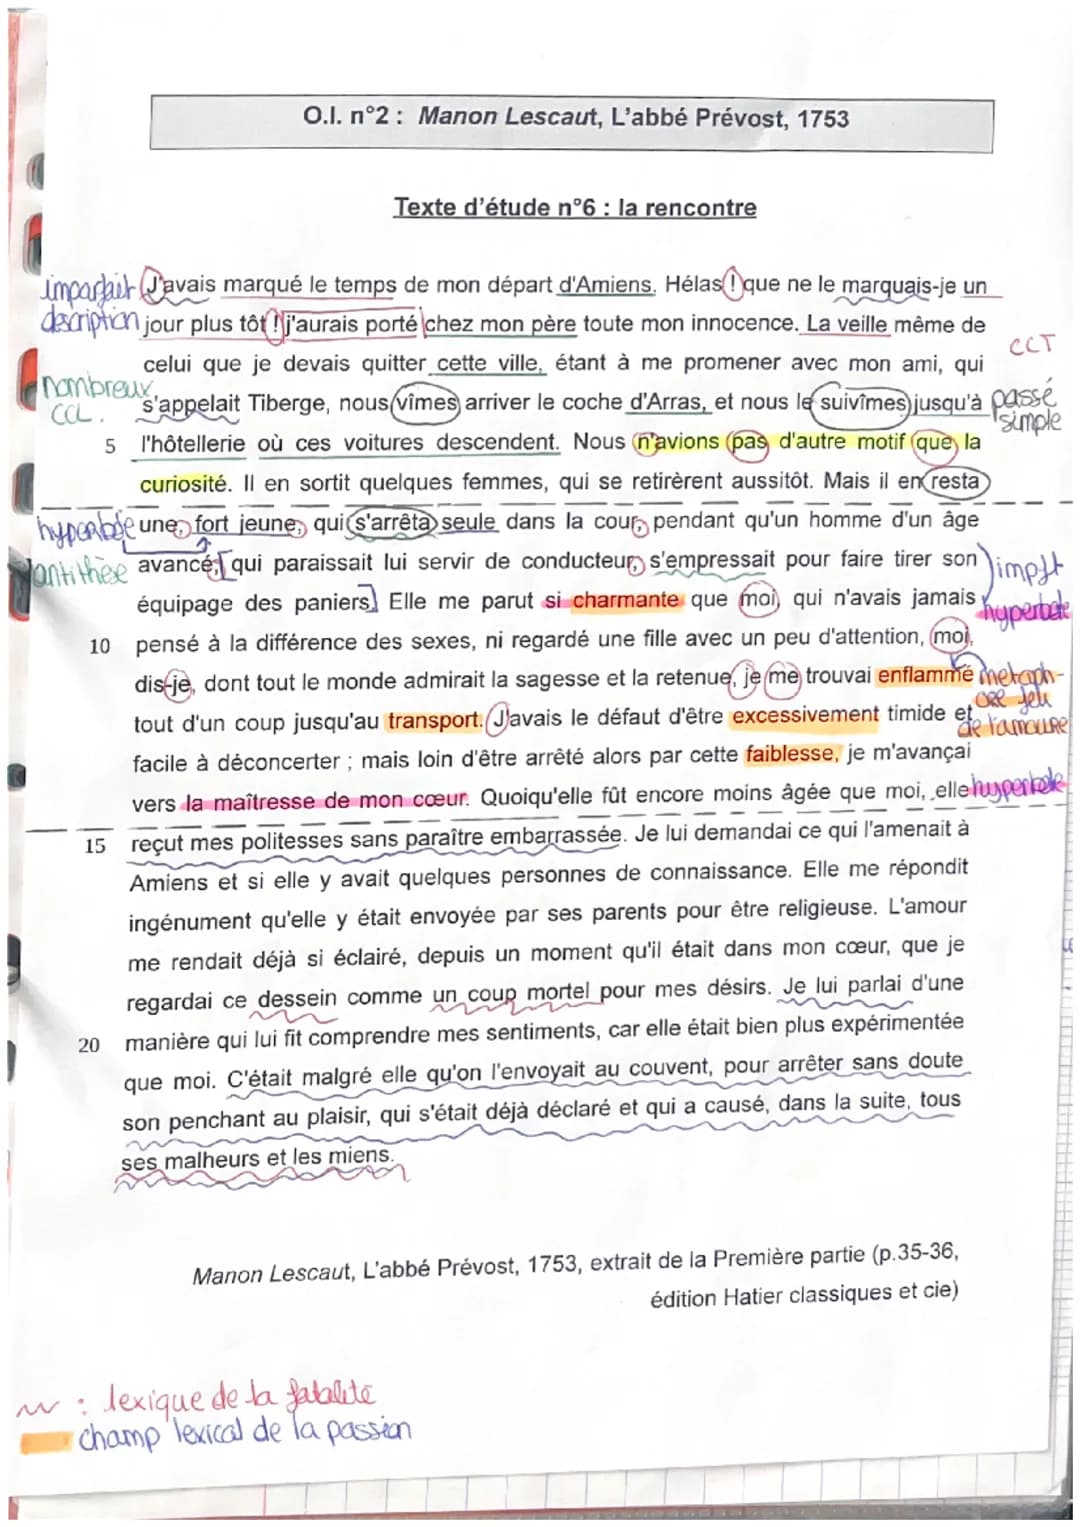 O.I. n°2 : Manon Lescaut, L'abbé Prévost, 1753
Texte d'étude n°6 : la rencontre
imparfait J'avais marqué le temps de mon départ d'Amiens. Hélas ! que ne le marquais-je un
description jour plus tôt ! j'aurais porté chez mon père toute mon innocence. La veille même de
CCT
celui que je devais quitter cette ville, étant à me promener avec mon ami, qui
nombreux CCL. s'appelait Tiberge, nous vîmes arriver le coche d'Arras, et nous le suivîmes jusqu'à passé simple
5 l'hôtellerie où ces voitures descendent. Nous n'avions pas d'autre motif que la
curiosité. Il en sortit quelques femmes, qui se retirèrent aussitôt. Mais il en resta
hyperbole une, fort jeune, qui s'arrêta seule dans la cour, pendant qu'un homme d'un âge
antithèse avancé, qui paraissait lui servir de conducteur, s'empressait pour faire tirer son impft
équipage des paniers. Elle me parut si charmante que moi, qui n'avais jamais hyperbole
10 pensé à la différence des sexes, ni regardé une fille avec un peu d'attention, moi,
dis-je, dont tout le monde admirait la sagesse et la retenue, je me trouvai enflammé metaph-
ore feu
tout d'un coup jusqu'au transport. J'avais le défaut d'être excessivement timide et de l'amoure
facile à déconcerter ; mais loin d'être arrêté alors par cette faiblesse, je m'avançai
vers la maîtresse de mon cœur. Quoiqu'elle fût encore moins âgée que moi, elle hyperbole
15 reçut mes politesses sans paraître embarrassée. Je lui demandai ce qui l'amenait à
Amiens et si elle y avait quelques personnes de connaissance. Elle me répondit
ingénument qu'elle y était envoyée par ses parents pour être religieuse. L'amour
me rendait déjà si éclairé, depuis un moment qu'il était dans mon cœur, que je
regardai ce dessein comme un coup mortel pour mes désirs. Je lui parlai d'une
20 manière qui lui fit comprendre mes sentiments, car elle était bien plus expérimentée
que moi. C'était malgré elle qu'on l'envoyait au couvent, pour arrêter sans doute
son penchant au plaisir, qui s'était déjà déclaré et qui a causé, dans la suite, tous
ses malheurs et les miens.
Manon Lescaut, L'abbé Prévost, 1753, extrait de la Première partie (p.35-36,
édition Hatier classiques et cie)
: lexique de la fatalité
champ lexical de la passion